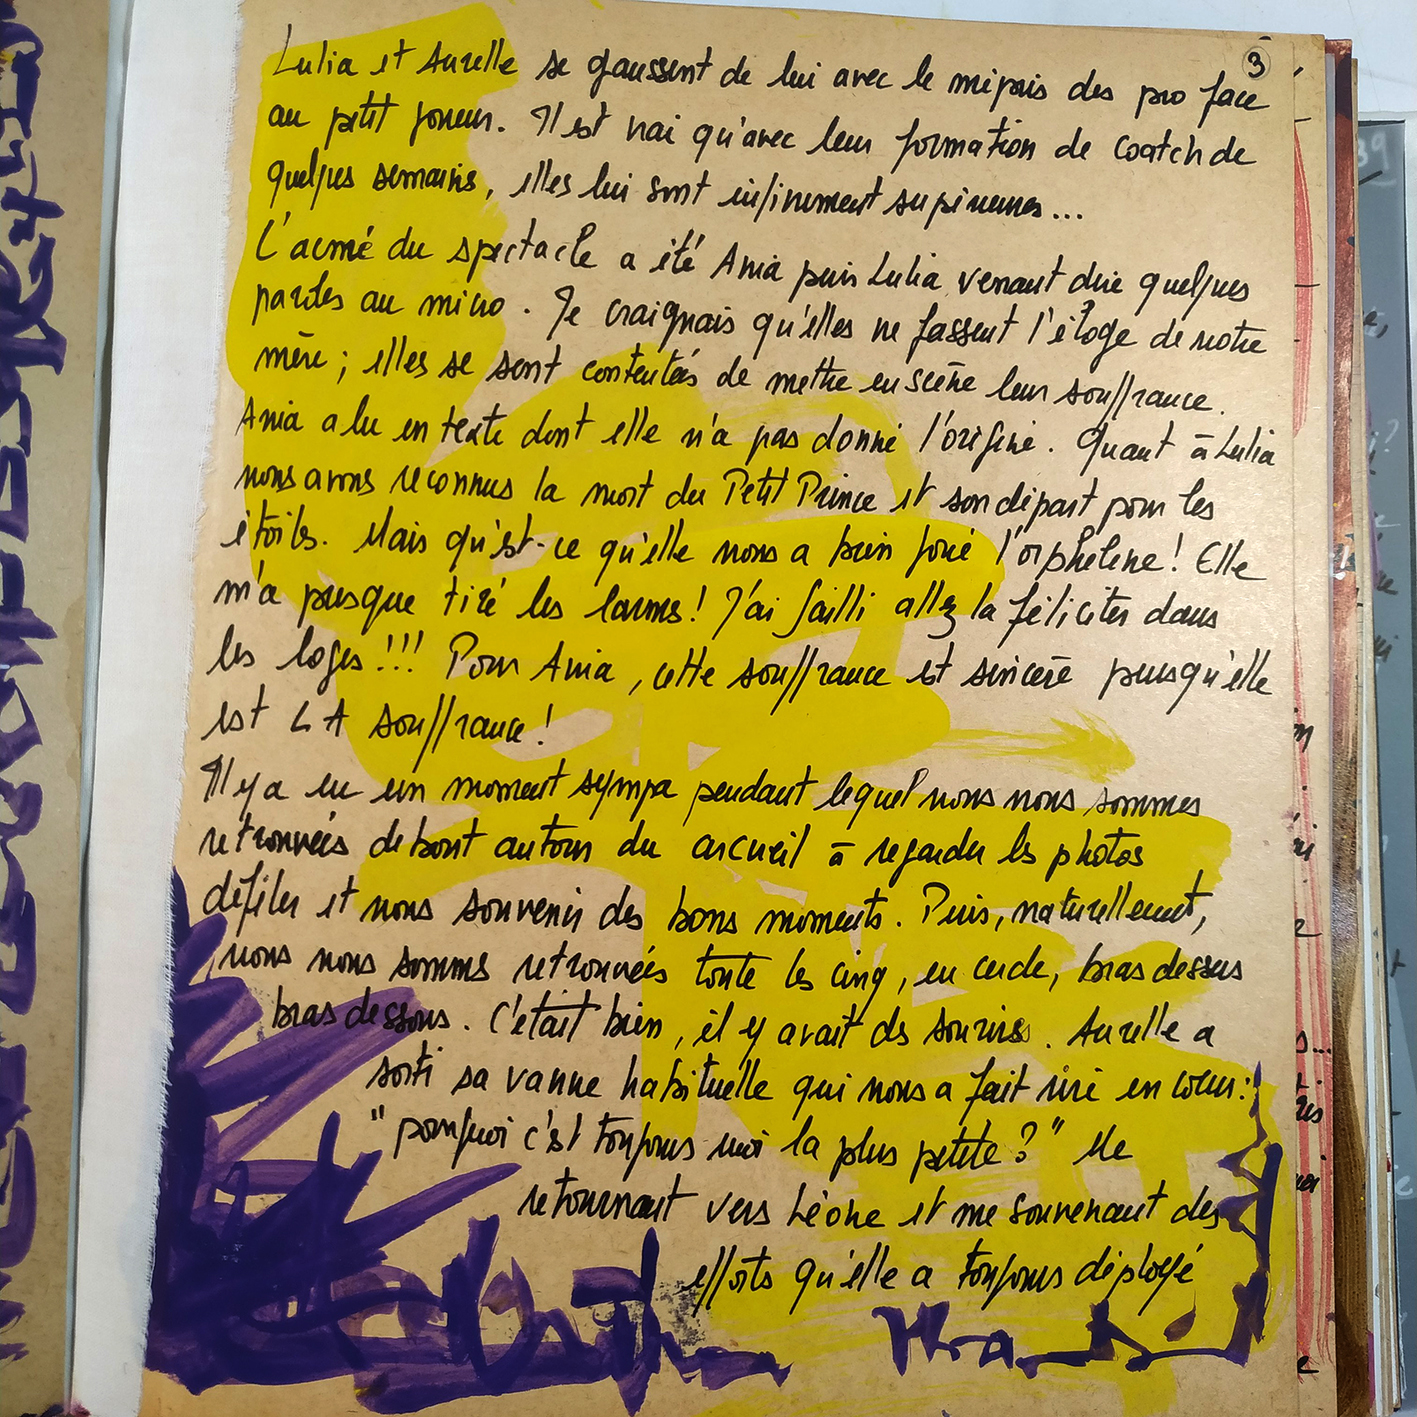 3
Lulia et Aurelle se gaussent de lui avec le mépris des pro face
au petit joueur. Il est vrai qu'avec leur formation de coatch de
quelques semaines, elles lui sont infiniment supérieures...
L'acmé du spectacle a été Ania puis Lulia venant dire quelques
paroles au micro. Je craignais qu'elles ne fassent l'éloge de notre
mère ; elles se sont contentées de mettre en scène leur souffrance.
Ania a lu un texte dont elle n'a pas donné l'origine. Quant à Lulia
nous avons reconnus la mort du Petit Prince et son départ pour les
étoiles. Mais qu'est-ce qu'elle nous a bien joué l'orpheline ! Elle
m'a presque tiré les larmes ! J'ai failli allez la féliciter dans
les loges !!! Pour Ania, cette souffrance est sincère puisqu'elle
est LA souffrance !
Il y a eu un moment sympa pendant lequel nous nous sommes
retrouvées debout autour du cercueil à regarder les photos
défiler et nous souvenir des bons moments. Puis, naturellement,
nous nous sommes retrouvées toute les cinq, en cercle, bras dessus
bras dessous. C'était bien, il y avait des sourires. Aurelle a
sorti sa vanne habituelle qui nous a fait rire en cœur :
"pourquoi c'est toujours moi la plus petite ?" Me
retournant vers Léone et me souvenant des
efforts qu'elle a toujours déployé